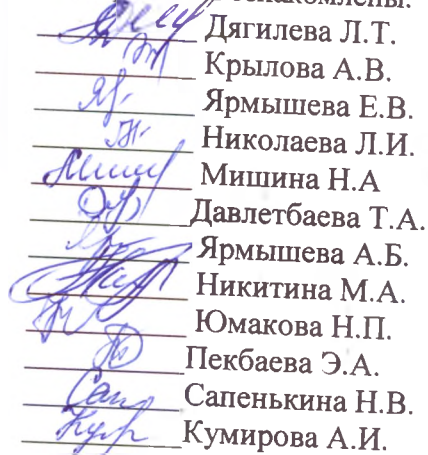 Дягилева Л.Т.
Крылова А.В.
Ярмышева Е.В.
Николаева Л.И.
Мишина Н.А
Давлетбаева Т.А.
Ярмышева А.Б.
Никитина М.А.
Юмакова Н.П.
Пекбаева Э.А.
Сапенькина Н.В.
Кумирова А.И.